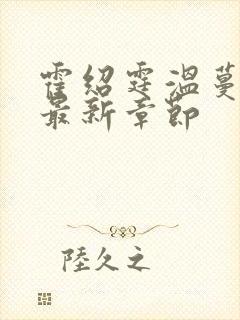 霍绍霆温蔓
最新章節
陸久之